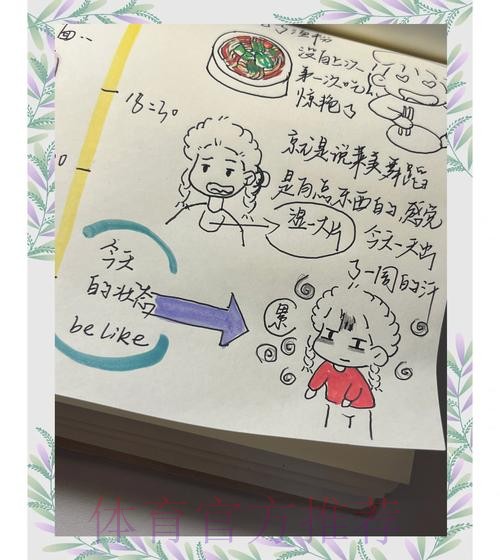 面..
没有上次
第一次吃
惊艳了
18:30
就是说华美舞蹈
是有点东西的,感觉
今天一天出
了一周的汗
湿一大片
今天
的状态
be like
累
体育官方推荐